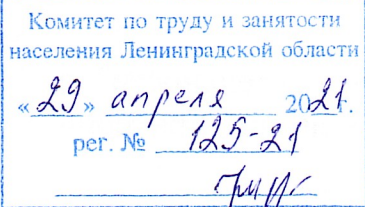 Комитет по труду и занятости
населения Ленинградской области
«29» апреля 2021г.
рег. № 125-21